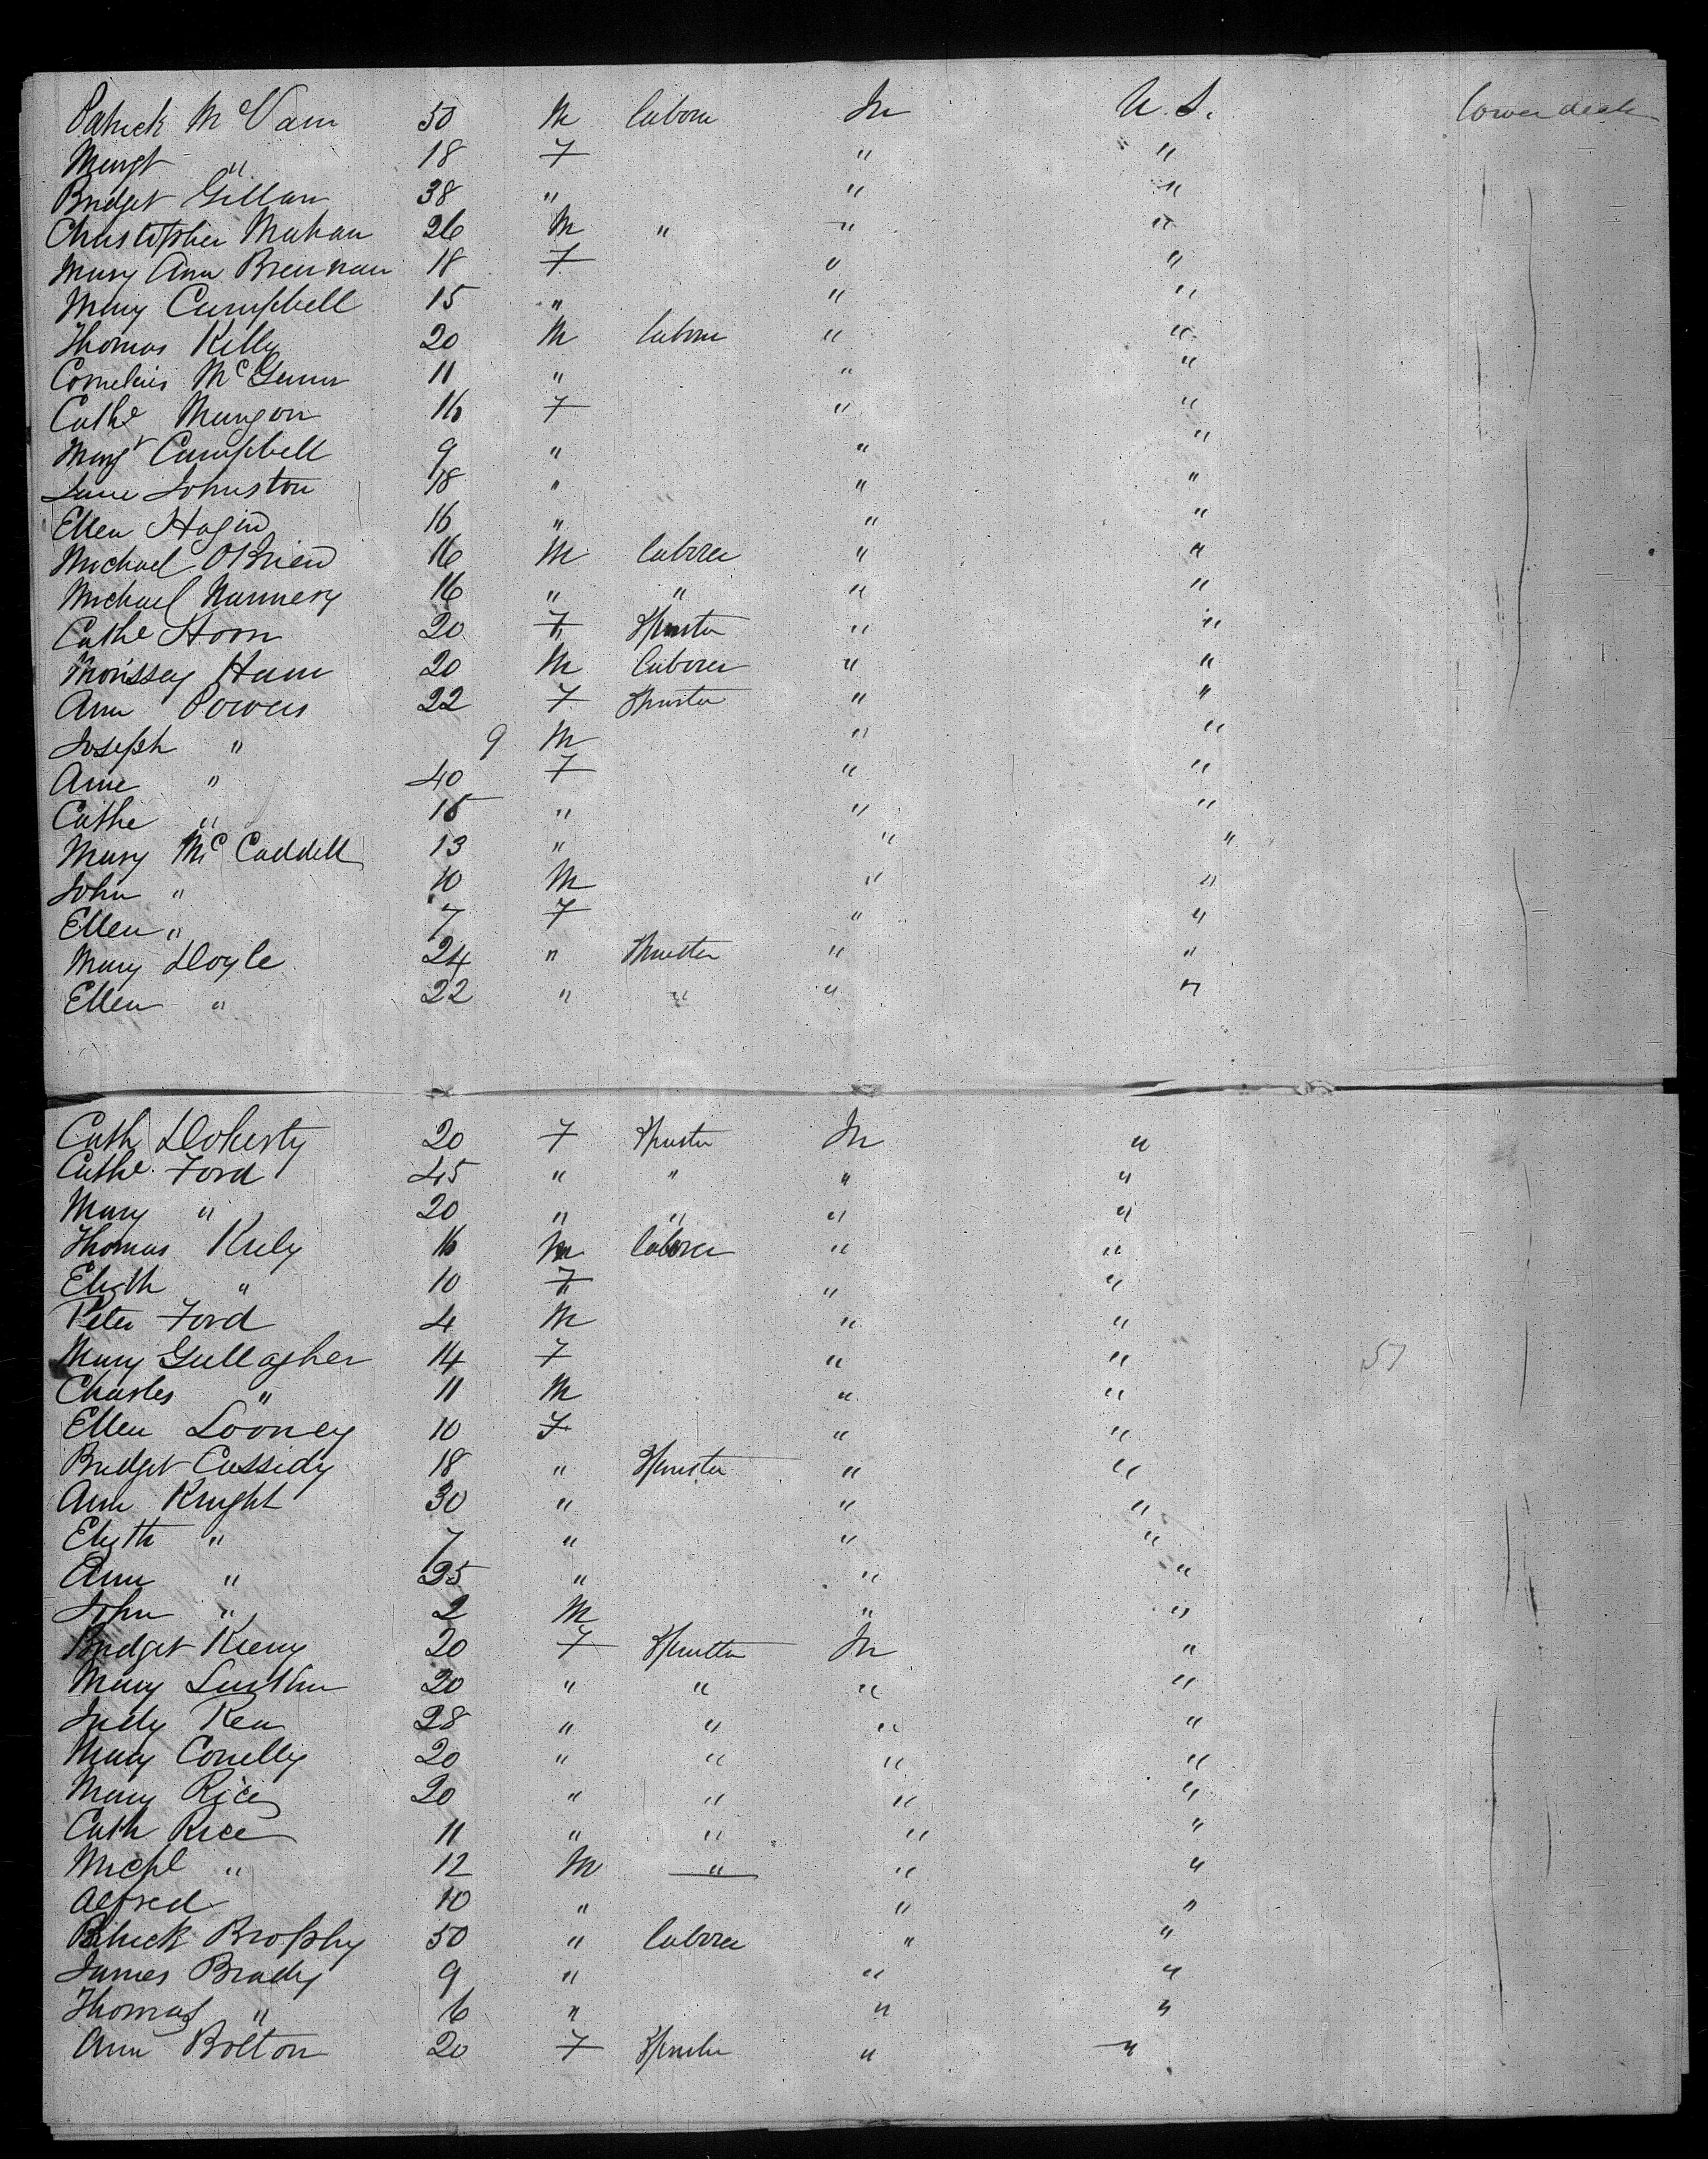 Patrick McVann 50 M labore Ir U.S. lower deck
Margt " 18 F " "
Bridget Gillan 38 " " "
Christopher Mahan 26 M " " "
Mary Ann Brennan 18 F " "
Mary Campbell 15 " " "
Thomas Kelly 20 M labore " "
Cornelius McGunn 11 " " "
Cathe Mangon 16 F " "
Margt Campbell 9 " " "
Jane Johnston 18 " " "
Ellen Hagin 16 " " "
Michael OBrien 16 M laborer " "
Michael Nannery 16 " " " "
Cathe Horn 20 F Spinster " "
Morissey Ham 20 M laborer " "
Ann Powers 22 F Spinster " "
Joseph " 9 M " "
Anne " 40 F " "
Cathe " 15 " " "
Mary McCaddell 13 " " "
John " 10 M " "
Ellen " 7 F " "
Mary Doyle 24 " Spinster " "
Ellen " 22 " " " "
Cath Doherty 20 F Spinster Ir "
Cathe Ford 45 " " " "
Mary " 20 " " " "
Thomas Kiely 16 M laborer " "
Elizth " 10 F " "
Peter Ford 4 M " "
Mary Gullagher 14 F " " 57
Charles " 11 M " "
Ellen Looney 10 F " "
Bridget Cassidy 18 " Spinster " "
Ann Knight 30 " " "
Elizth " 7 " " "
Ann " 25 " " "
John " 2 M " "
Bridget Kieny 20 F Spinster Ir "
Mary 20 " " " "
Judy Rea 28 " " " "
Mary Conelly 20 " " " "
Mary Rice 20 " " " "
Cath Rice 11 " " " "
Michl " 12 M " " "
Alfred 10 " " "
Patrick Brophy 50 " laborer " "
James Brady 9 " " "
Thomas " 6 " " "
Ann Bolton 20 F Spinster " "